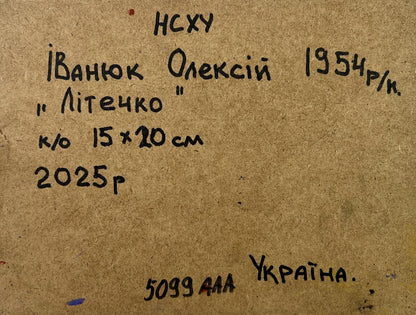 НСХУ
Іванюк Олексій 1954 р/н.
„Літечко"
к/о 15×20 см
2025 р
Україна.
5099 ААА